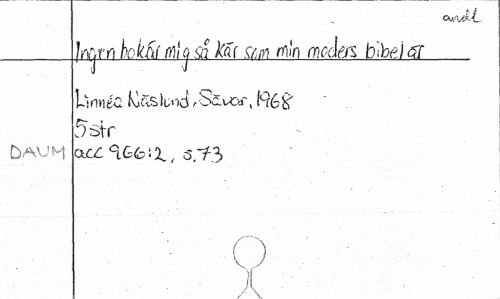 andl
Ingen bok är mig så kär som min moders bibel är
Linnéa Näslund, Sävar, 1968
5 str
DAUM acc 966:2, s.73